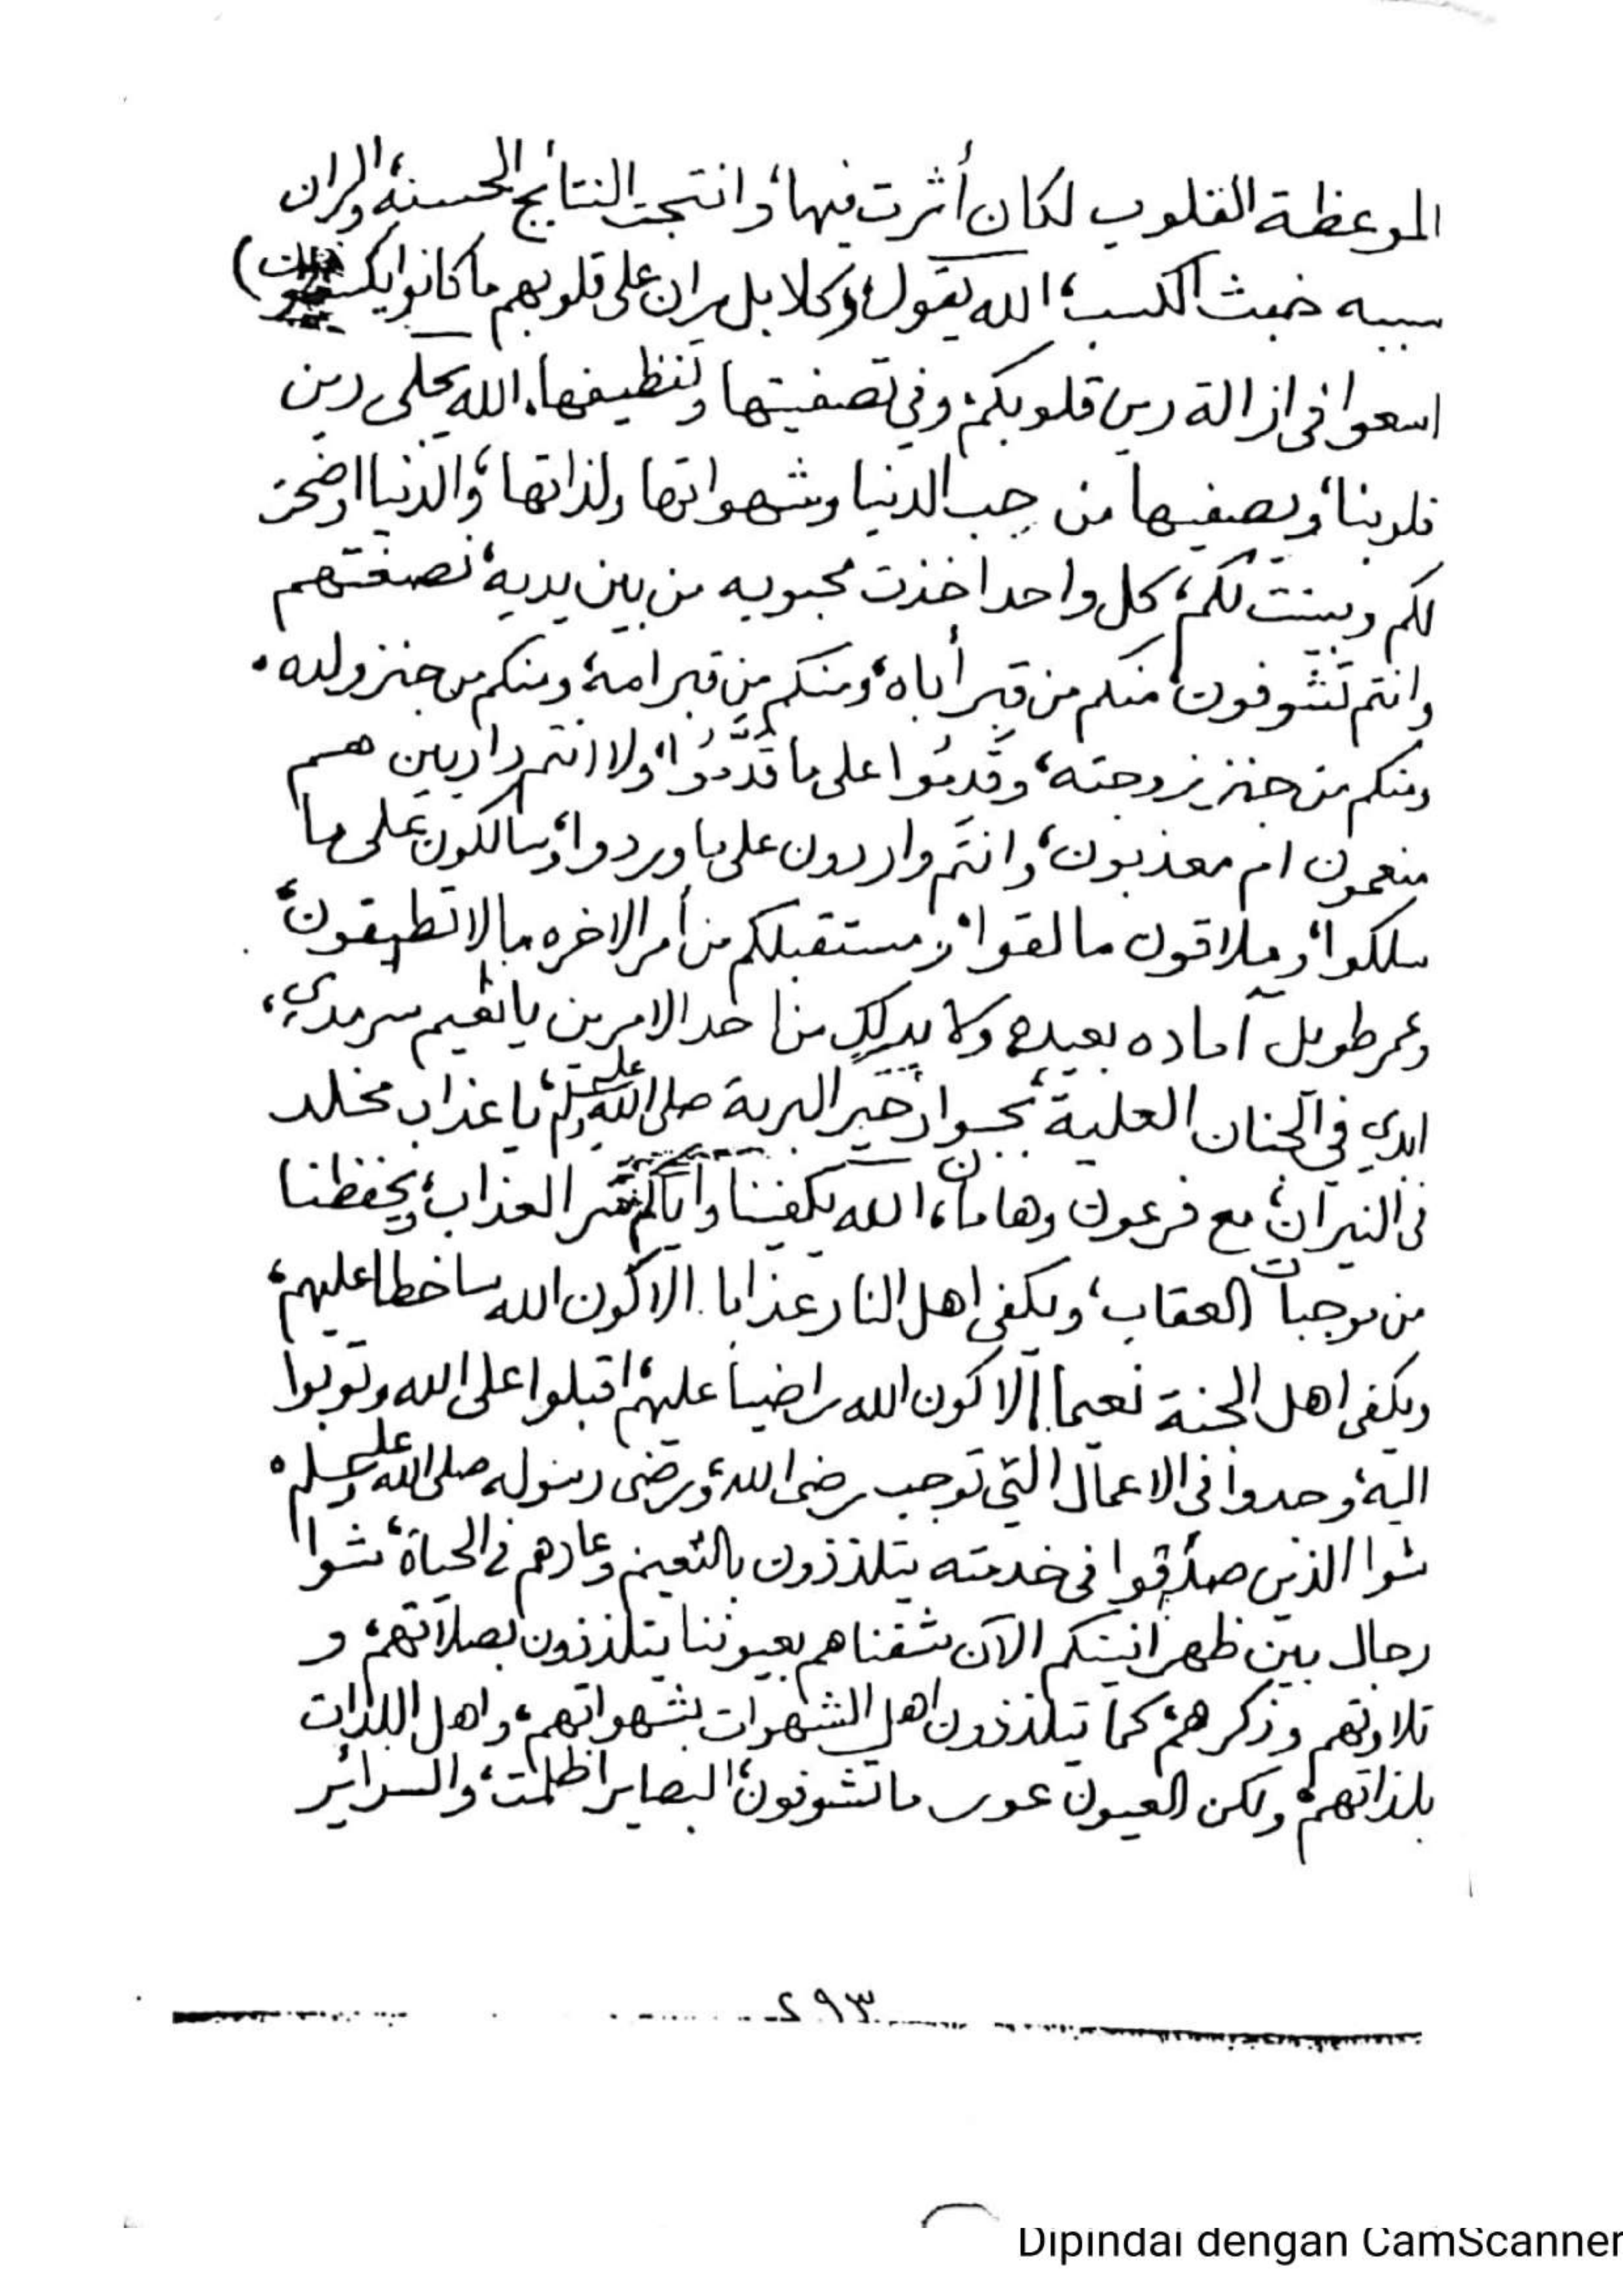 الموعظة القلوب لكان أثرت فيها، وانتجت النتايج الحسنة، والران
سببه خبث الكسب، الله يقول (كلا بل ران على قلوبهم ما كانوا يكسبون)
اسعوا فى ازالة رين قلوبكم، وفي تصفيتها وتنظيفها، الله يجلى رين
قلوبنا، ويصفيها من حب الدنيا وشهواتها ولذاتها، والدنيا اوضحت
لكم وبينت لكم، كل واحد اخذت محبوبه من بين يديه، نصفتهم
وانتم تشوفون، منكم من قبر أباه، ومنكم من قبر امه، ومنكم من جنز ولده،
ومنكم من جنز زوجته، وقدموا على ما قدموا، ولا انتم داريين هم
منعمون ام معذبون، وانتم واردون على ما وردوا، وسالكون على ما
سلكوا، وملاقون ما لقوا، ومستقبلكم من أمر الاخره ما لا تطيقون،
وعمر طويل آماده بعيده ولا بد لك من احد الامرين يا نعيم سرمدي،
ابدي في الجنان العلية، بجوار خير البرية صلى الله عليه وسلم، يا عذاب مخلد
فى النيران، مع فرعون وهامان، الله يكفينا واياكم شر العذاب، ويحفظنا
من موجبات العقاب، ويكفى اهل النار عذابا الا كون الله ساخطا عليهم،
ويكفى اهل الجنة نعيما إلا كون الله راضيا عليهم، اقبلوا على الله وتوبوا
اليه، وجدوا فى الاعمال التي توجب رضى الله، ورضى رسوله صلى الله عليه وسلم،
شوا الذين صدقوا فى خدمته يتلذذون بالنعيم وعادهم في الحياة، شوا
رجال بين ظهرانيتكم الآن شفناهم بعيوننا يتلذذون بصلاتهم، و
تلاوتهم وذكرهم، كما تيلذذون اهل الشهوات بشهواتهم، واهل اللذات
بلذاتهم، ولكن العيون عور ما تشوفون، البصاير اظلمت، والسرائر
٢٩٣
Dipindai dengan CamScanner